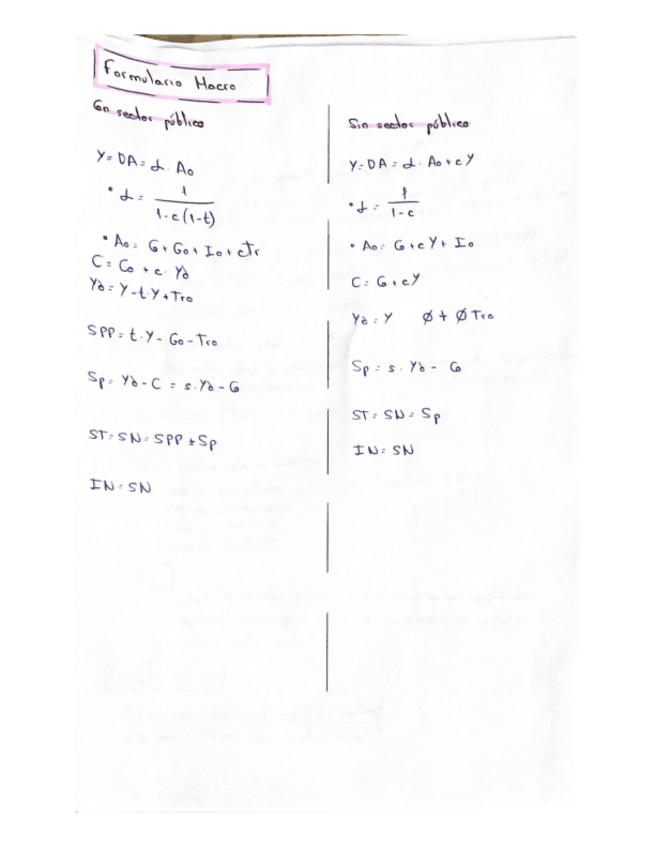 Formulario Macro
Con sector público
Y = DA = α · Ao
• α = 1 / 1-c(1-t)
• Ao = Co + Go + Io + cTr
C = Co + c · Yd
Yd = Y - t·Y + Tro
SPP = t·Y - Go - Tro
Sp = Yd - C = s·Yd - Co
ST = SN = SPP + Sp
IN = SN
Sin sector público
Y = DA = α · Ao + cY
• α = 1 / 1-c
• Ao = Co + cY + Io
C = Co + cY
Yd = Y Ø t Ø Tro
Sp = s · Yd - Co
ST = SN = Sp
IN = SN